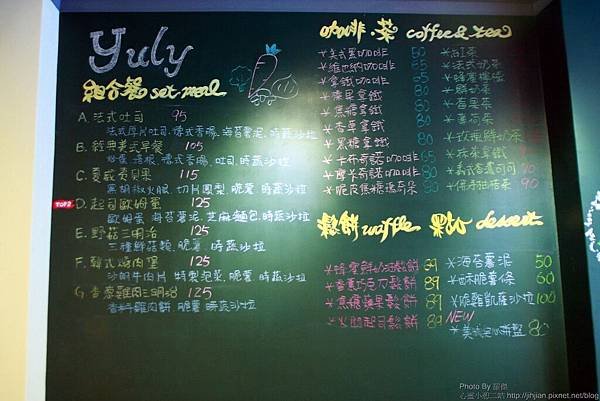 Yuly
組合餐 set meal
A. 法式吐司 95
法式厚片吐司、德式香腸、海苔薯泥、時蔬沙拉
B. 經典美式早餐 105
德式香腸、吐司、時蔬沙拉
C. 夏威夷貝果 115
黑胡椒火腿、切片鳳梨、脆薯、時蔬沙拉
TOP2
D. 起司歐姆蛋 125
歐姆蛋、海苔薯泥、芝麻麵包、時蔬沙拉
E. 野菇三明治 125
三種鮮菇類、脆薯、時蔬沙拉
F. 韓式燒肉堡 125
沙朗牛肉片、特製泡菜、脆薯、時蔬沙拉
G. 香蔥雞肉三明治 125
雞肉餅、脆薯、時蔬沙拉
咖啡·茶 coffee & tea
*美式黑咖啡 50
*維也納咖啡 65
*拿鐵咖啡 65
*榛果拿鐵 80
*焦糖拿鐵 80
*香草拿鐵 80
*黑糖拿鐵 80
*卡布奇諾咖啡 65
*摩卡奇諾咖啡 80
*脆皮焦糖瑪奇朵 80
*紅茶
*法式奶茶
*蜂蜜檸檬
*鮮奶茶
*香果茶
*薄荷茶
*玫瑰鮮奶茶 90
*抹茶拿鐵 90
*美式香濃可可 90
*佛手柚桔茶 90
鬆餅 waffle
*蜂蜜鮮奶油鬆餅 79
*香蕉巧克力鬆餅 89
*焦糖蘋果鬆餅 89
*火腿起司鬆餅 89
點心 dessert
*海苔薯泥 50
*酥脆薯條 60
*脆雞凱薩沙拉 100
NEW
*美式拼盤 80
Photo By 瑞傑
心靈小憩二站 http://jihjian.pixnet.net/blog